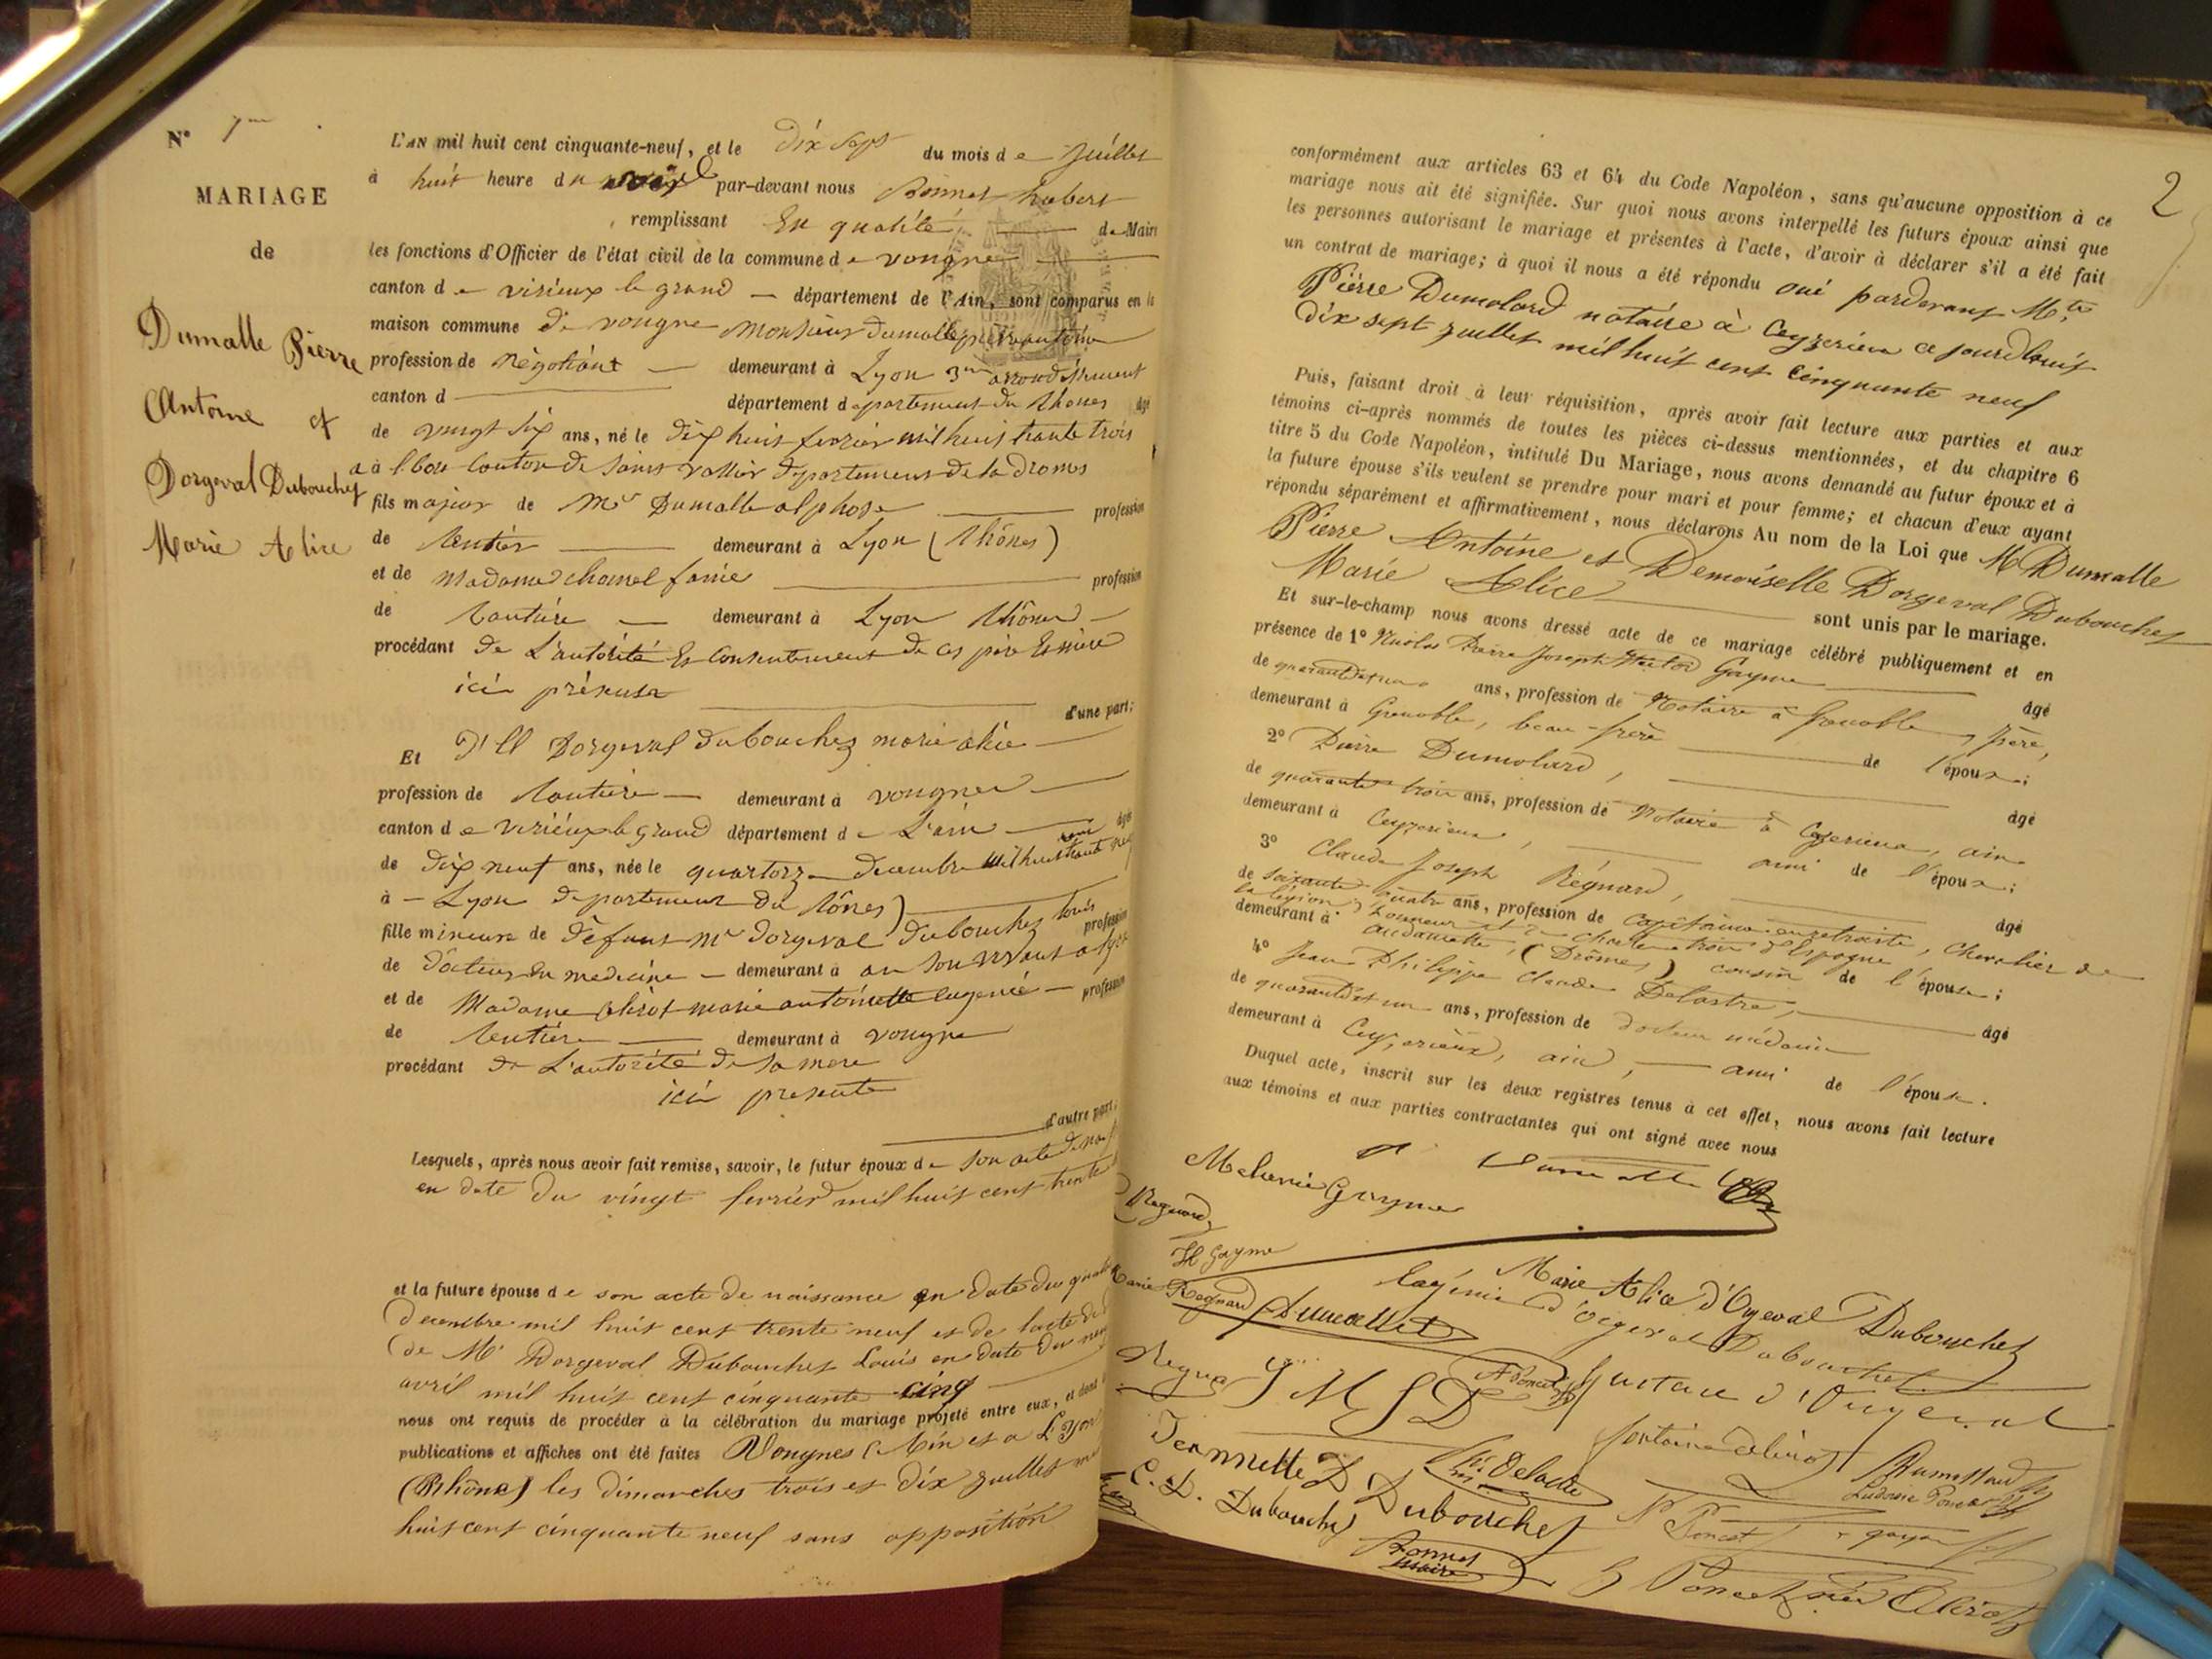 N° 7
MARIAGE
de
Dumalle Pierre
Antoine et
Dorgeval Dubouchet
Marie Alice
L'AN mil huit cent cinquante-neuf, et le dix sept du mois de juillet
à huit heure du par-devant nous Bonnet hubert
remplissant En qualité de Maire
les fonctions d'Officier de l'état civil de la commune de vongne
canton de virieux le grand département de l'Ain, sont comparus en la
maison commune de vongne Monsieur dumalle pierre antoine
profession de négotiant demeurant à Lyon 3me arrondissement
canton d département departement du Rhones âgé
de vingt six ans, né le dix huit fevrier mil huit trante trois
à albon Canton de Saint vallier departement de la dromes
fils majeur de Mr Dumalle alphose profession
de rentier demeurant à Lyon (Rhônes)
et de Madame chomel fanie profession
de rantière demeurant à Lyon Rhône
procédant de L'autorité Et Consentement de ces père Et mère
ici présents
d'une part;
Et Dll Dorgeval dubouchez marie alice
profession de rantière demeurant à vongne
canton de virieux le grand département de L'ain âgée
de dix neuf ans, née le quartorze decembre mil huit cent trante neuf
à Lyon departement du Rônes)
fille mineure de défunt Mr dorgeval dubouchez louis profession
de docteur En medecine demeurant à an son vivant a Lyon
et de Madame clérot marie antoinette Eugenie profession
de rentière demeurant à vongne
procédant de L'autorité de sa mere
ici presente
d'autre part;
Lesquels, après nous avoir fait remise, savoir, le futur époux de son acte de
en date du vingt fevrier mil huit cent trente
et la future épouse de son acte de naissance en date du
decembre mil huit cent trente neuf et de lacte de
de Mr Dorgeval Dubouchet Louis en date du
avril mil huit cent cinquante cinq
nous ont requis de procéder à la célébration du mariage projeté entre eux, et dont
publications et affiches ont été faites Vongnes (Ain et a Lyon
(Rhône) les dimanches trois et dix juillet
huit cent cinquante neuf sans opposition
2
conformément aux articles 63 et 64 du Code Napoléon, sans qu'aucune opposition à ce
mariage nous ait été signifiée. Sur quoi nous avons interpellé les futurs époux ainsi que
les personnes autorisant le mariage et présentes à l'acte, d'avoir à déclarer s'il a été fait
un contrat de mariage; à quoi il nous a été répondu oui pardevant Mtre
Pierre Dumolard notaire à Ceyzerieu ce jourdhuit
dix sept juillet mil huit cent cinquante neuf
Puis, faisant droit à leur réquisition, après avoir fait lecture aux parties et aux
témoins ci-après nommés de toutes les pièces ci-dessus mentionnées, et du chapitre 6
titre 5 du Code Napoléon, intitulé Du Mariage, nous avons demandé au futur époux et à
la future épouse s'ils veulent se prendre pour mari et pour femme; et chacun d'eux ayant
répondu séparément et affirmativement, nous déclarons Au nom de la Loi que M Dumalle
Pierre Antoine et Demoiselle Dorgeval Dubouchet
Marie Alice sont unis par le mariage.
Et sur-le-champ nous avons dressé acte de ce mariage célébré publiquement et en
présence de 1° Pierre Joseph Gayme âgé
de ans, profession de Notaire à Grenoble
demeurant à Grenoble, beau-frère de l'épouse;
2° Pierre Dumolard, âgé
de quarante trois ans, profession de Notaire à Ceyzerieu, ain
demeurant à Ceyzerieux, ami de l'épouse;
3° Claude Joseph Régnard, âgé
de soixante quatre ans, profession de Capitaine en retraite, chevalier de
la légion d'honneur
demeurant à (Drômes) cousin de l'épouse;
4° Jean Philippe Claude Delastre, âgé
de quarante et un ans, profession de docteur médecin
demeurant à Ceyzerieux, ain, ami de l'épouse.
Duquel acte, inscrit sur les deux registres tenus à cet effet, nous avons fait lecture
aux témoins et aux parties contractantes qui ont signé avec nous
Melanie Gayme
Regnard
H Gayme
Marie Regnard
Marie Alice d'Orgeval Dubouchet
Eugénie d'Orgeval Dubouchet
Gustave d'Orgeval
Jeannette D Dubouchet
C. D. Dubouchet
Bonnet
maire